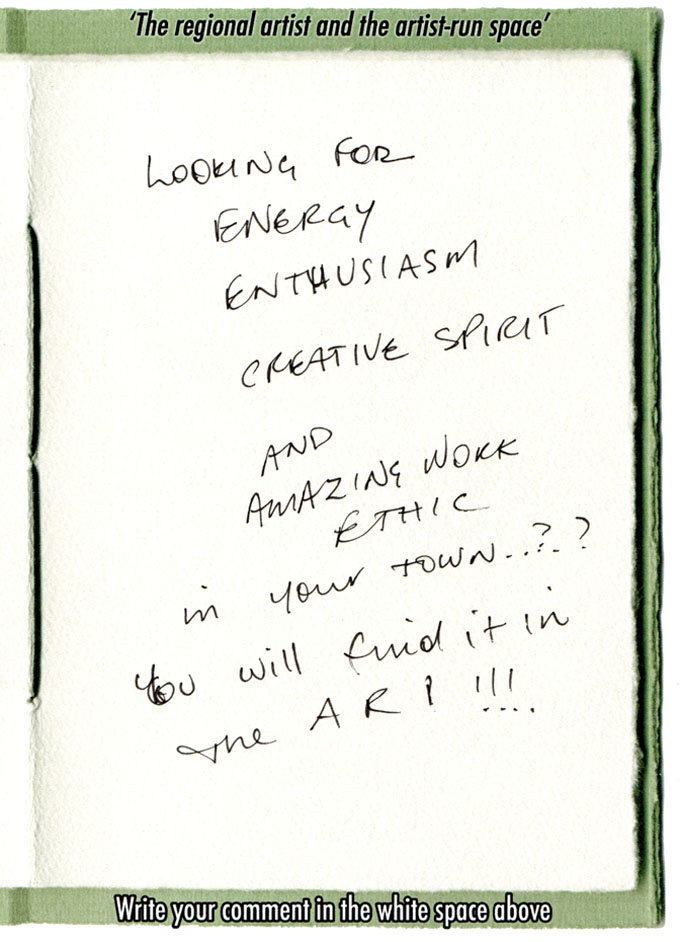 ‘The regional artist and the artist-run space’
LOOKING FOR
ENERGY
ENTHUSIASM
CREATIVE SPIRIT
AND
AMAZING WORK
ETHIC
in your TOWN...?..?
You will find it in
the ARI !!!
Write your comment in the white space above